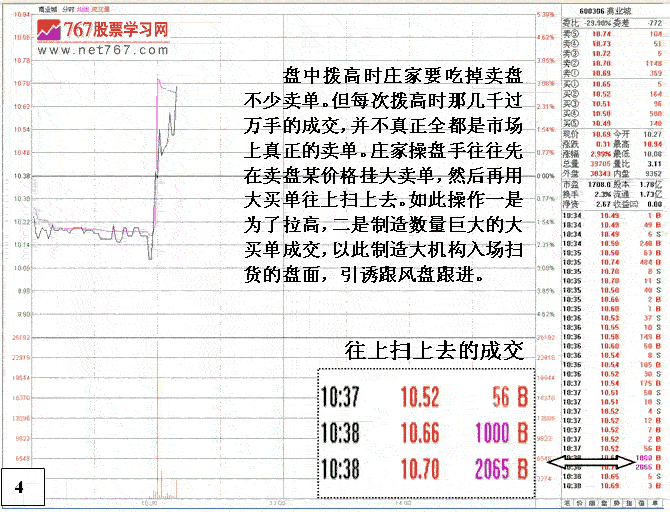 商业城 分时 均线 成交量
767股票学习网
www.net767.com
盘中拨高时庄家要吃掉卖盘
不少卖单。但每次拨高时那几千过
万手的成交，并不真正全都是市场
上真正的卖单。庄家操盘手往往先
在卖盘某价格挂大卖单，然后再用
大买单往上扫上去。如此操作一是
为了拉高，二是制造数量巨大的大
买单成交，以此制造大机构入场扫
货的盘面，引诱跟风盘跟进。
往上扫上去的成交
10:37 10.52 56 B
10:38 10.66 1000 B
10:38 10.70 2065 B
4
10.94
10.86
10.78
10.70
10.62
10.54
10.46
10.38
10.30
10.22
10.14
10.06
9.98
9.90
26192
22918
19644
16370
13096
9822
6548
3274
10:30
13:00
14:00
5.39%
600306 商业城
委比 -29.90% 委差 -772
卖⑤ 10.74 164
卖④ 10.73 51
卖③ 10.72 5
卖② 10.70 1148
卖① 10.69 359
买① 10.65 5
买② 10.52 164
买③ 10.51 96
买④ 10.50 500
买⑤ 10.49 140
现价 10.69 今开 10.27
涨跌 0.31 最高 10.94
涨幅 2.99% 最低 10.08
总量 39705 量比 3.11
外盘 30343 内盘 9362
市盈 1708.0 股本 1.78亿
换手 2.3% 流通 1.73亿
净资 2.67 收益㈢ 0.00
10:34 10.49 1 B
10:34 10.49 49 B
10:34 10.49 6 S
10:34 10.50 240 B
10:35 10.50 63 B
10:35 10.74 404 B
10:35 10.70 8 S
10:35 10.70 11 S
10:35 10.50 40 S
10:35 10.66 2 B
10:35 10.60 1 B
10:36 10.53 37 S
10:36 10.55 10 S
10:36 10.58 149 B
10:36 10.60 50 B
10:36 10.54 8 S
10:36 10.54 105 B
10:36 10.52 30 S
10:37 10.54 175 B
10:37 10.51 50 S
10:37 10.51 10 S
10:37 10.52 4 S
10:37 10.52 12 B
10:37 10.52 7 B
10:37 10.52 2 B
10:37 10.52 56 B
1000 B
2065 B
10:38 10.65 5 S
10:38 10.69 3 B
笔 价 细 盘 势 指 值 单